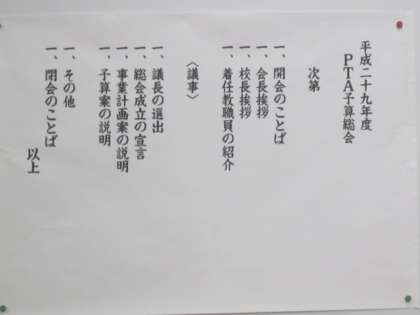 平成二十九年度
PTA予算総会
次第
一、開会のことば
一、会長挨拶
一、校長挨拶
一、着任教職員の紹介
〈議事〉
一、議長の選出
一、総会成立の宣言
一、事業計画案の説明
一、予算案の説明
一、その他
一、閉会のことば
以上